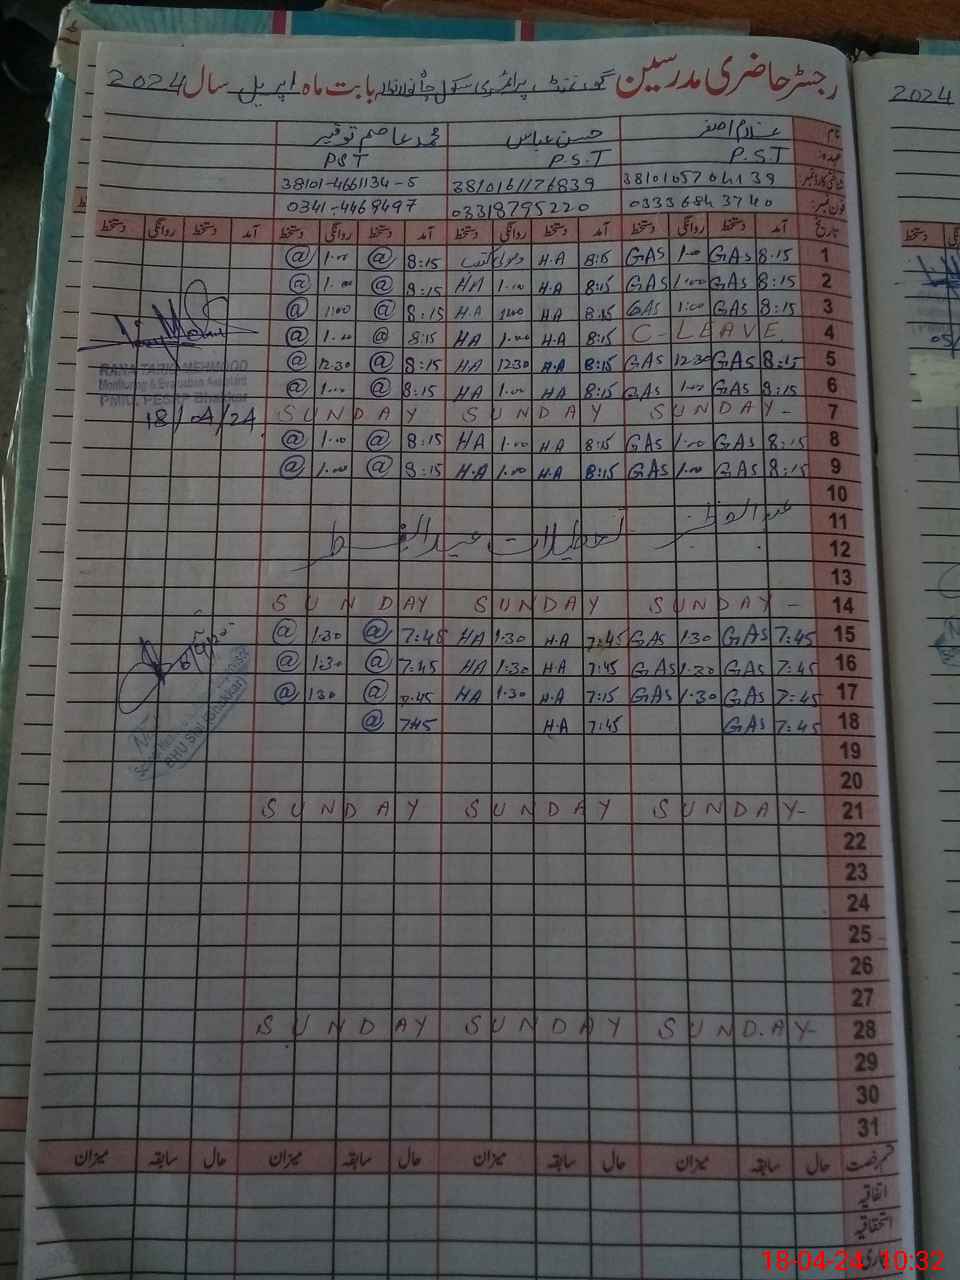 رجسٹر حاضری مدرسین گورنمنٹ پرائمری سکول بابت ماہ اپریل سال 2024
نام غلام اصغر حسن عباس محمد عاصم توقیر
عہدہ P.S.T P.S.T PST
شناختی کارڈ نمبر 3810161176839 38101-4661134-5
فون نمبر 03336843740 03318795220 0341-4469497
تاریخ آمد دستخط روانگی دستخط آمد دستخط روانگی دستخط آمد دستخط روانگی دستخط آمد دستخط روانگی دستخط
1 8:15 GAS 1:00 GAS 8:15 H.A 8:15 @ 1:00 @
2 8:15 GAS 1:00 GAS 8:15 H.A 1:00 HA 8:15 @ 1:00 @
3 8:15 GAS 1:00 GAS 8:15 HA 1:00 H.A 8:15 @ 1:00 @
4 C-LEAVE 8:15 H.A 1:00 HA 8:15 @ 1:00 @
5 8:15 GAS 12:30 GAS 8:15 H.A 12:30 HA 8:15 @ 12:30 @
6 8:15 GAS 1:00 GAS 8:15 HA 1:00 HA 8:15 @ 1:00 @
7 SUNDAY- SUNDAY SUNDAY
8 8:15 GAS 1:00 GAS 8:15 HA 1:00 HA 8:15 @ 1:00 @
9 8:15 GAS 1:00 GAS 8:15 H.A 1:00 H.A 8:15 @ 1:00 @
10
11 تعطیلات عید الفطر
12
13
14 SUNDAY- SUNDAY SUNDAY
15 7:45 GAS 1:30 GAS 7:45 H.A 1:30 HA 7:45 @ 1:30 @
16 7:45 GAS 1:30 GAS 7:45 HA 1:30 HA 7:45 @ 1:30 @
17 7:45 GAS 1:30 GAS 7:15 H.A 1:30 HA 7:45 @ 1:30 @
18 7:45 GAS 7:45 H.A 7:45 @
19
20
21 SUNDAY- SUNDAY SUNDAY
22
23
24
25
26
27
28 SUNDAY- SUNDAY SUNDAY
29
30
31
قسم رخصت حال سابقہ میزان حال سابقہ میزان حال سابقہ میزان حال سابقہ میزان
اتفاقیہ
استحقاقیہ
RANA TARIQ MEHMOOD
Monitoring & Evaluation Assistant
18/04/24
2024
18-04-24 10:32